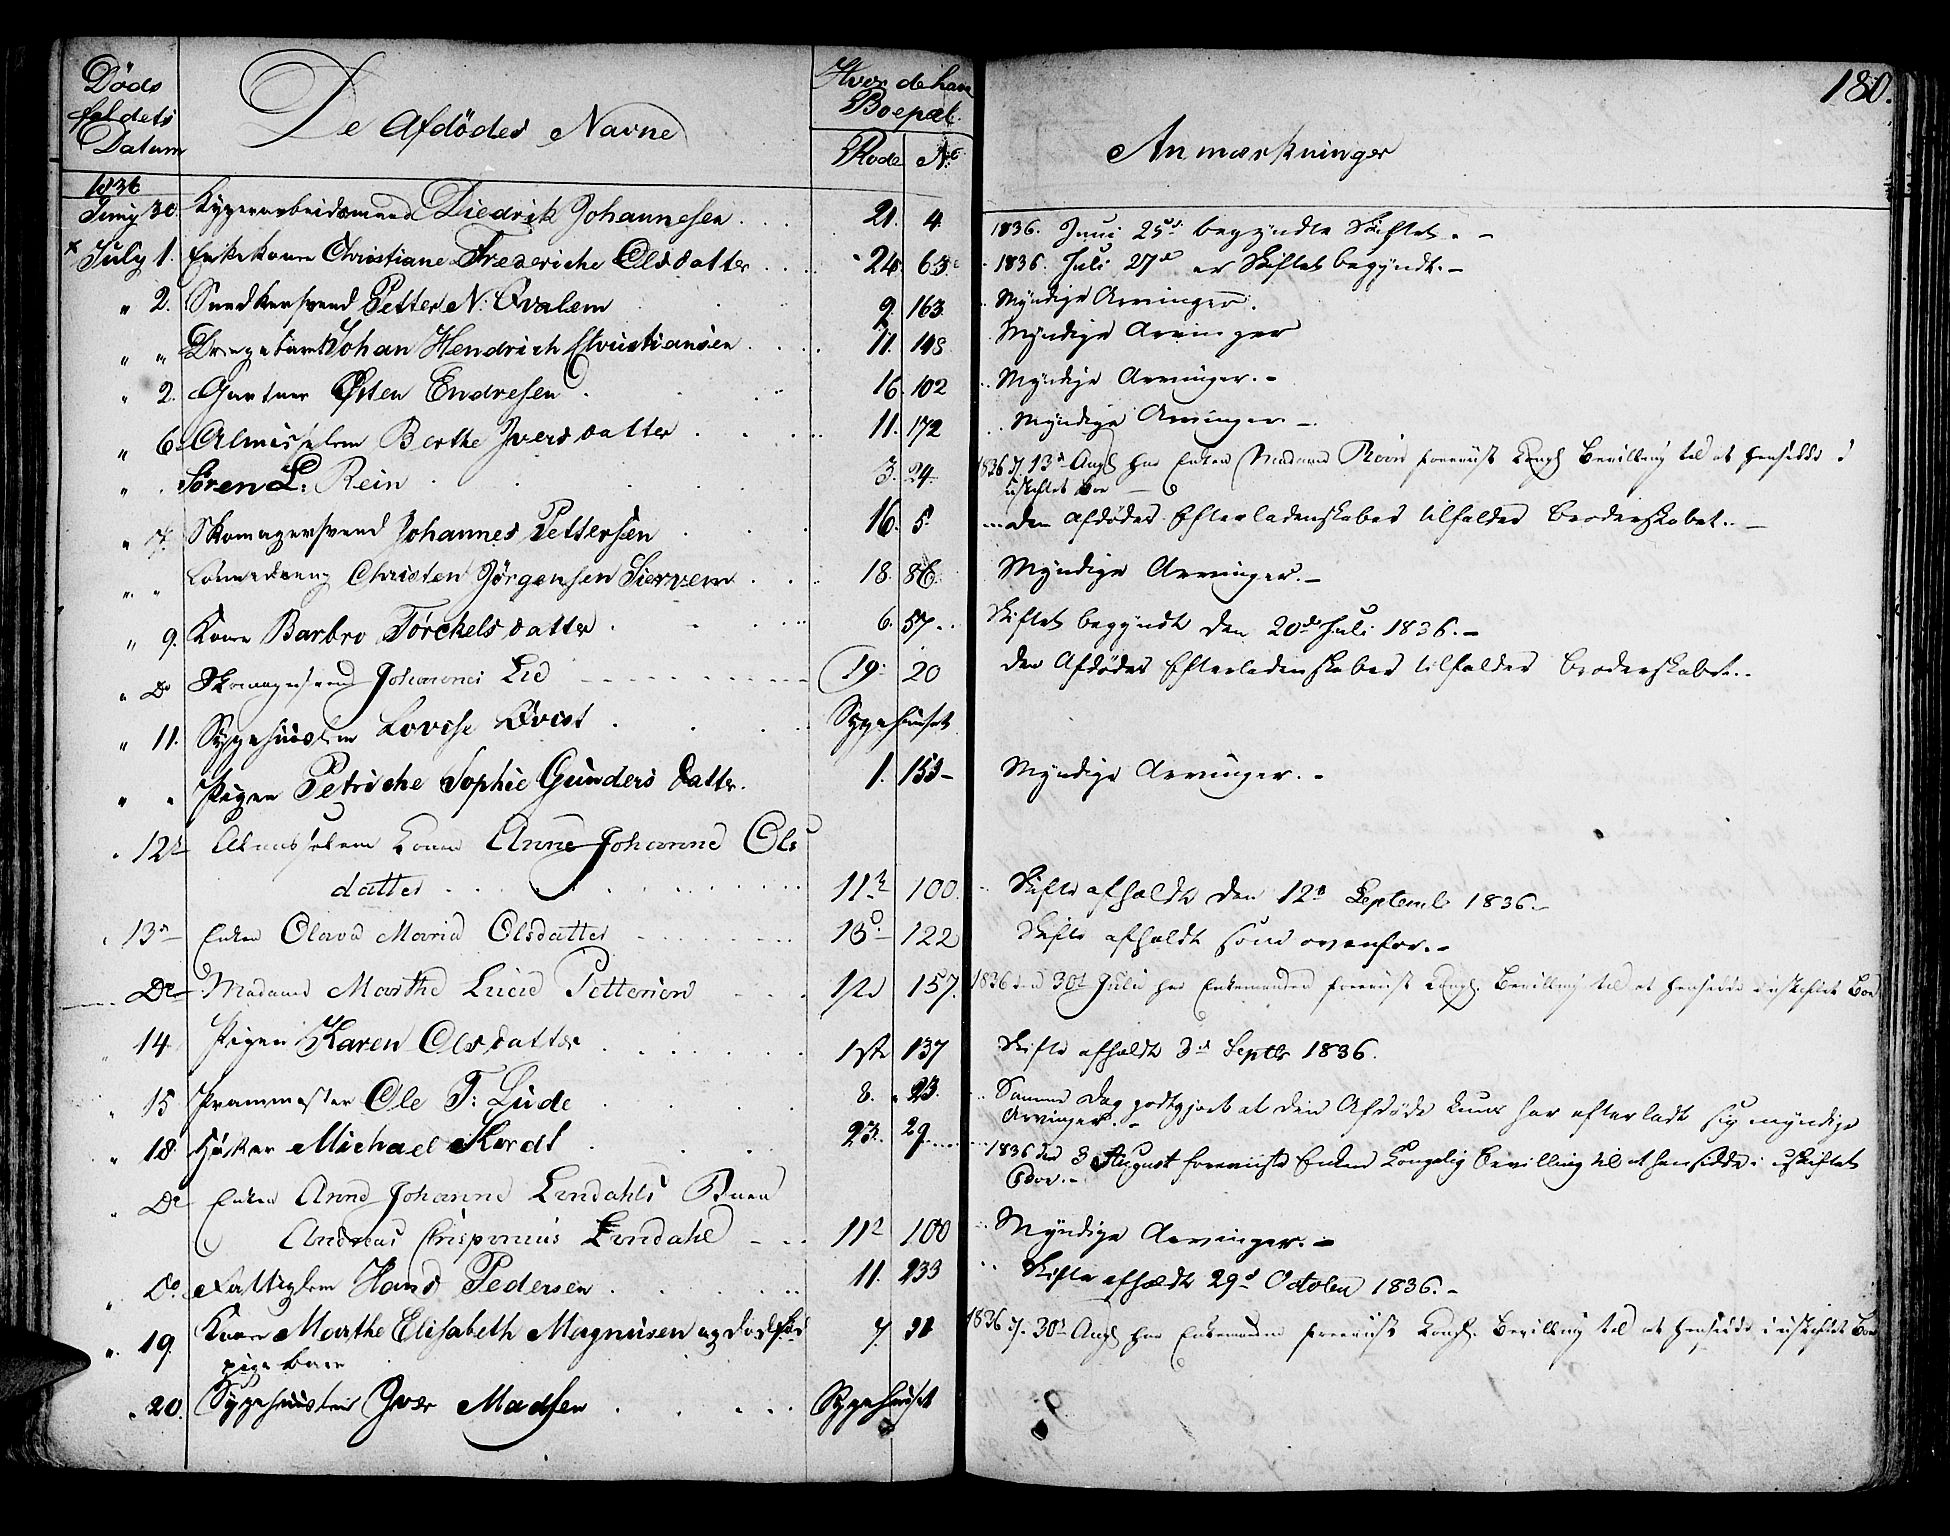 180.
Døds
faldets
Datum
De Afdødes Navne
Hvor de have
Boepæl.
Rode No
Anmærkninger
1836
Juny 30. Diedrik Johannesen 21. 4. 1836. Juni 25de begyndte Skiftet. -
x July 1. Enkekone Christiane Frederiche Olsdatter 24. 63 1836. Juli 27de er Skiftet begyndt. -
" 2. Snedkersvend Petter N: Qvalem 9. 163 Myndige Arvinger.
" " Johan Hendrich Christiansen 11. 148 Myndige Arvinger
" 2. Gartner Østen Endresen 16. 102 Myndige Arvinger. -
" 6. Almisselem Berthe Iversdatter 11. 172 Myndige Arvinger -
" Søren L: Rein 3. 24. 1836 d. 13de Aug har Enken Madame Rein foreviist Kongl Bevilling til at hensidde i
uskiftet Boe -
" 7. Skomagersvend Johannes Pettersen 16. 5. den Afdødes Efterladenskaber tilfalder Broderskabet. -
" " Christen Jörgensen 18. 86. Myndige Arvinger. -
" 9. Kone Barbro Törckelsdatter 6. 57. Skiftet begyndt den 20de Juli 1836. -
" Do Skomagersvend Johannes Lid 19. 20 den Afdødes Efterladenskaber tilfalder Broderskabet.
" 11. Sygehuuslem Lovise Qvist Sygehuset
" " Pigen Petriche Sophie Gunders datter. 1. 153 Myndige Arvinger. -
" 12te Almisselem Konen Anne Johanne Ols
datter 11te 100. Skifte afholdt den 12te Septemb 1836. -
13de Enken Olava Maria Olsdatter 13. 122 Skifte afholdt som ovenfor. -
Do Madame Marthe Lucie Petterson 1ste 157. 1836 den 30te Juli har Enkemanden foreviist Kongl. Bevilling til at hensidde i uskiftet Boe
14. Pigen Karen Olsdatter 1ste 137 Skifte afholdt 3de Septbr 1836.
" 15. Prammester Ole T: Lude 8. 23. Samme Dag godtgjort at den Afdøde kuns har efterladt sig myndige
Arvinger. -
" 18. Høker Michael Kordt 23. 29 1836 den 3 August foreviiste Enken Kongelig Bevilling til at hensidde i uskiftet
Boe. -
" Do Enken Anne Johanne Lindahls Barn
Andreas Crispinius Lindahl 11te 100 Myndige Arvinger. -
" Do. Fattiglem Hans Pedersen 11. 233 Skifte afholdt 29de October 1836. -
" 19. Kone Marthe Elisabeth Magnusen og dødfød
pige barn 7. 1836 d. 30te Aug har Enkemanden foreviist Kongl. Bevilling til at hensidde i uskiftet Boe
" 20. Sygehuuslem Iver Madsen Sygehuset